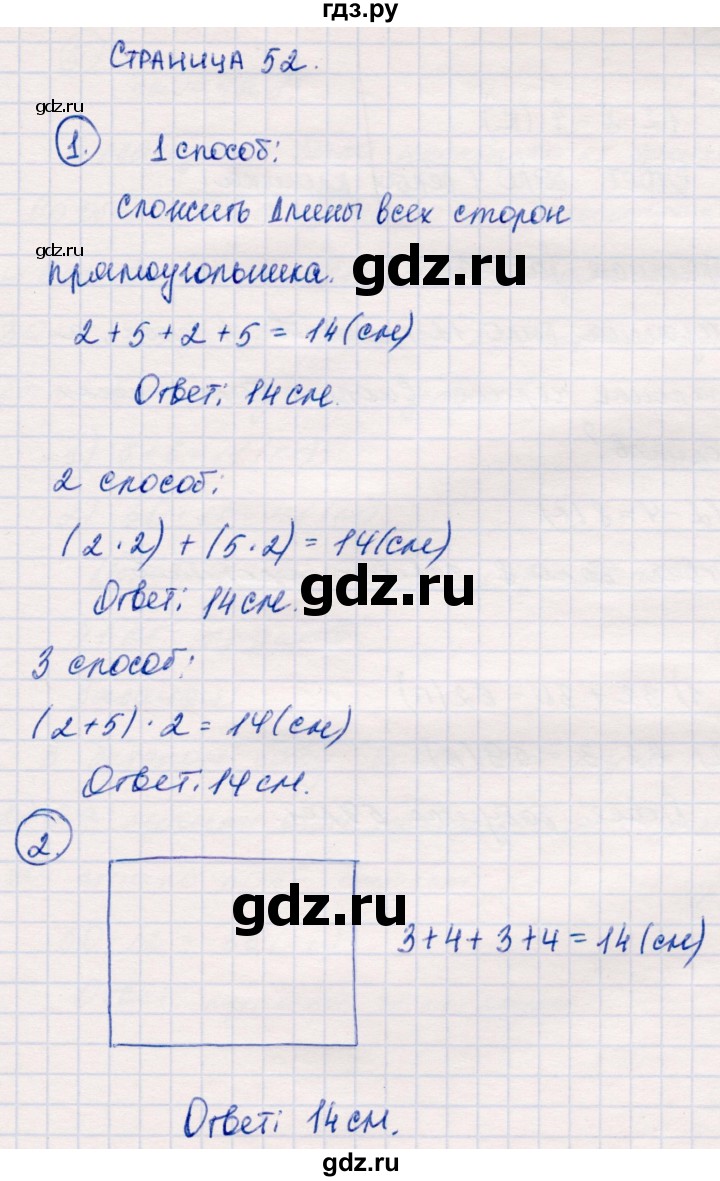 гдз.ру
Страница 52.
gdz.ru
1. 1 способ:
Сложить длины всех сторон
gdz.ru
прямоугольника. gdz.ru
2 + 5 + 2 + 5 = 14 (см)
Ответ: 14 см.
2 способ:
(2 · 2) + (5 · 2) = 14 (см)
Ответ: 14 см. gdz.ru
3 способ:
(2 + 5) · 2 = 14 (см)
Ответ: 14 см.
2.
gdz.ru
3 + 4 + 3 + 4 = 14 (см)
Ответ: 14 см.
gdz.ru